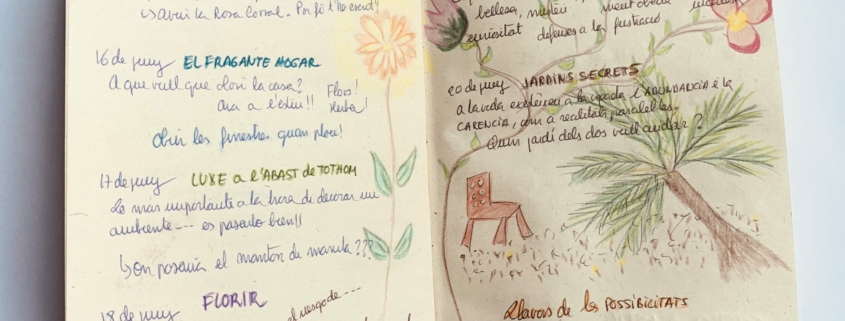 i havia la Rosa Corral. Por fi l'he escrit!
16 de juny EL FRAGANTE HOGAR
A que vull que olori la casa? Flors!
Ara a l'estiu!! Herba!
Obrir les finestres quan plou!
17 de juny LUXE a l'ABAST de TOTHOM
Lo más importante a la hora de decorar un
ambiente --- es pasarlo bien!!
On posaria el mantón de manila???
18 de juny FLORIR
el riesgo de ---
bellesa, misteri
curiositat defenses a la frustració
20 de juny JARDINS SECRETS
a la vida existeixen a la vegada l'ABUNDANCIA i la
CARENCIA, com a realitats paral·leles.
Quin jardí dels dos vull cuidar?
Llavors de les POSSIBILITATS